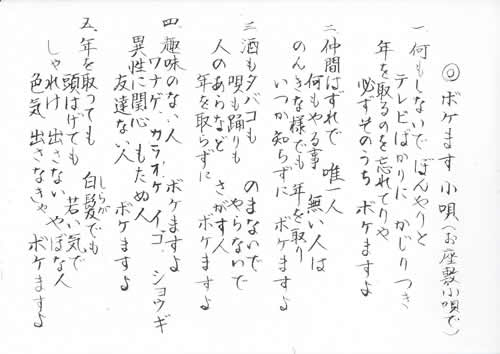 ◎ ボケます小唄(お座敷小唄で)
一 何もしないで ぼんやりと
テレビばかりに かじりつき
年を取るのを忘れてりゃ
必ずそのうち ボケますよ
二 仲間はずれで 唯一人
何もやる事 無い人は
のんきな様でも 年を取り
いつか知らずに ボケますよ
三 酒もタバコも のまないで
唄も踊りも やらないで
人のあらなど さがす人
年を取らずに ボケますよ
四 趣味のない人 ボケますよ
ワナゲ カラオケ イゴ ショウギ
異性に関心 もたぬ人
友達ない人 ボケますよ
五 年を取っても 白髪でも
しらが
頭はげても 若い気で
しゃれけ出さない やぼな人
色気出さなきゃ ボケますよ